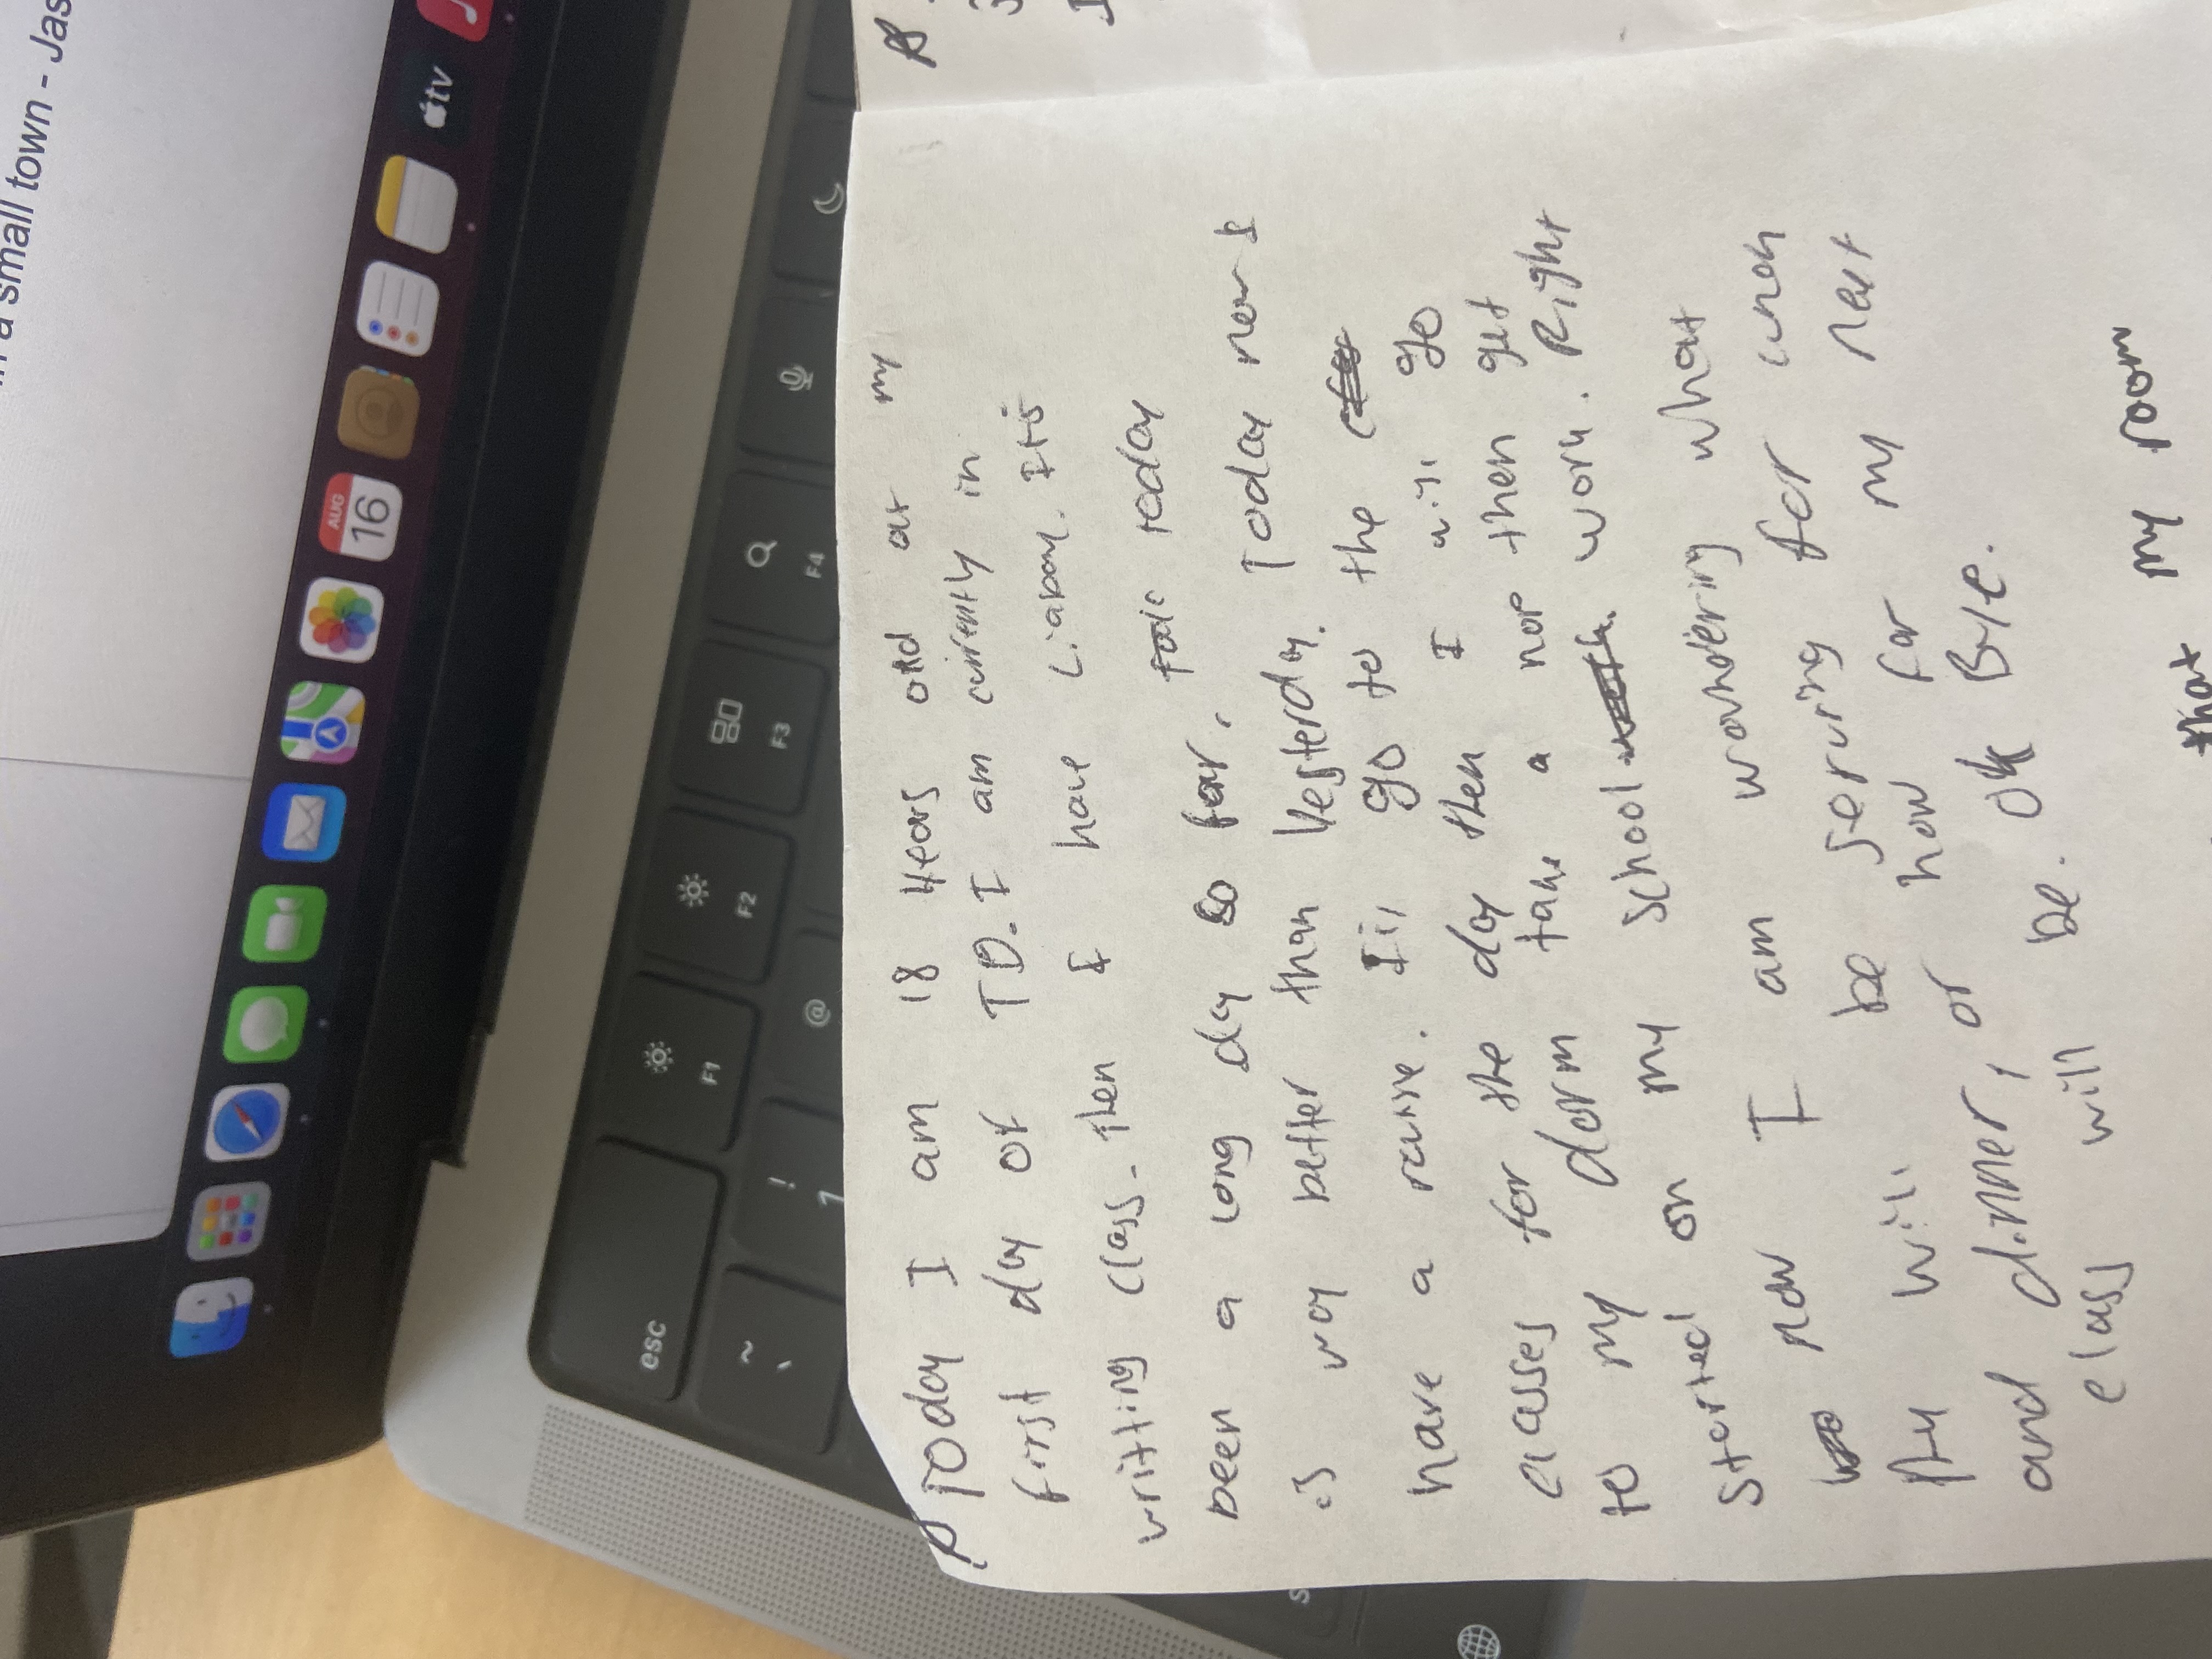 in a small town - Jas
AUG
16
tv
esc
F1
F2
F3
F4
~
`
!
1
@
Today I am 18 years old at my
first day of TD. I am currently in
writting class. Then I have It's
been a long day so far. today
is way better than Yesterday. Today now I
have a I'll go to the
classes for the day then I will go
to my dorm take a nap then get
started on my school work. Right
now I am wondering what
they will be serving for lunch
and dinner, or how far my next
class will be. Ok Bye.
that my room